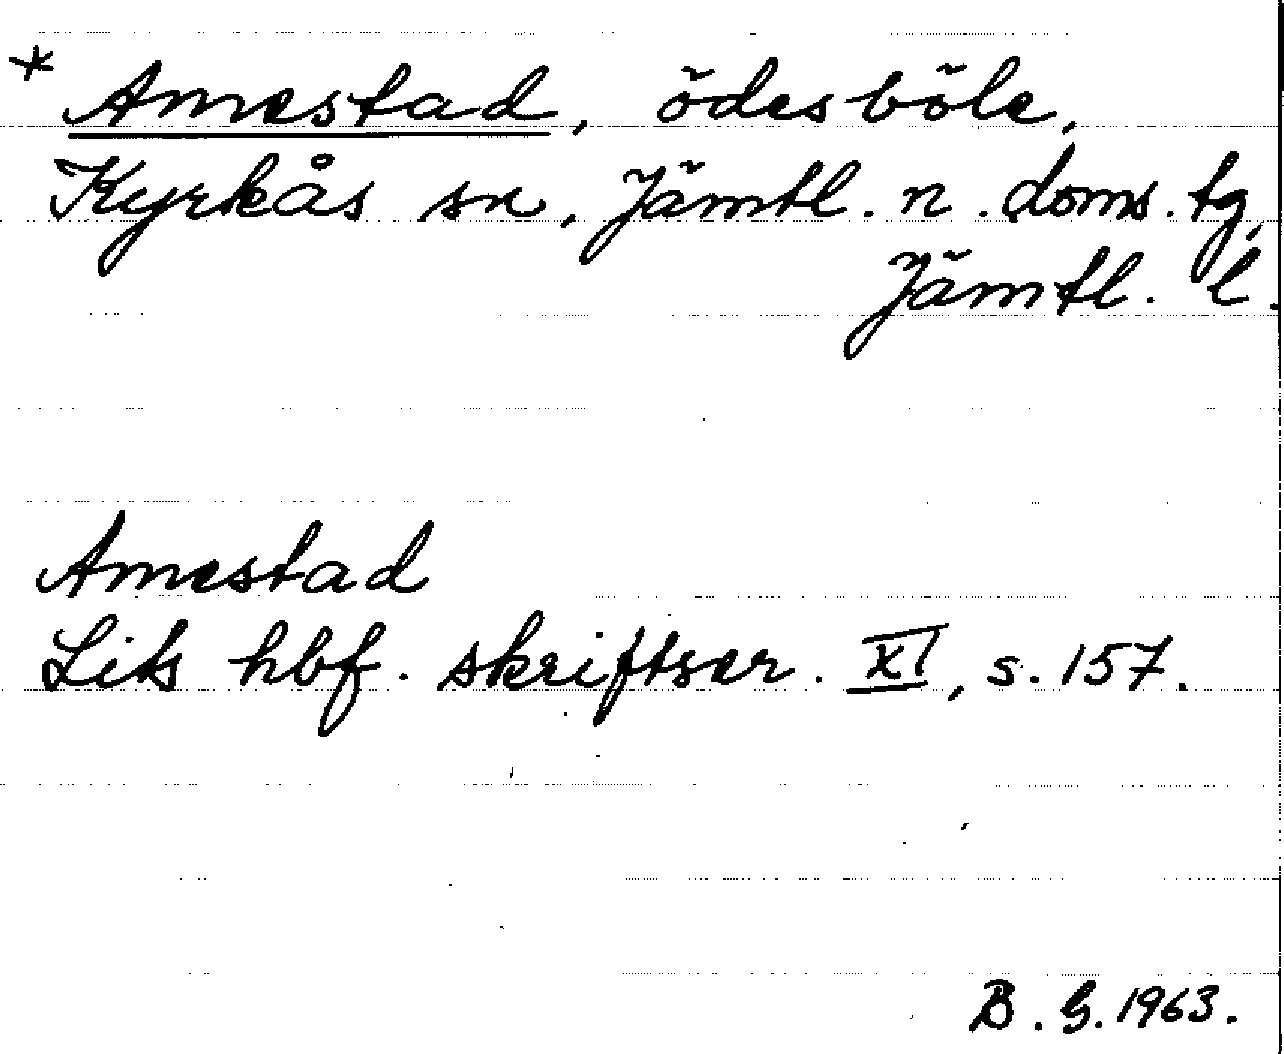 * Amestad, ödesböle,
Kyrkås sn, Jämtl. n. doms. tg,
Jämtl. l.
Amestad
Lits hbf. skriftser. XI, s. 157.
B. G. 1963.